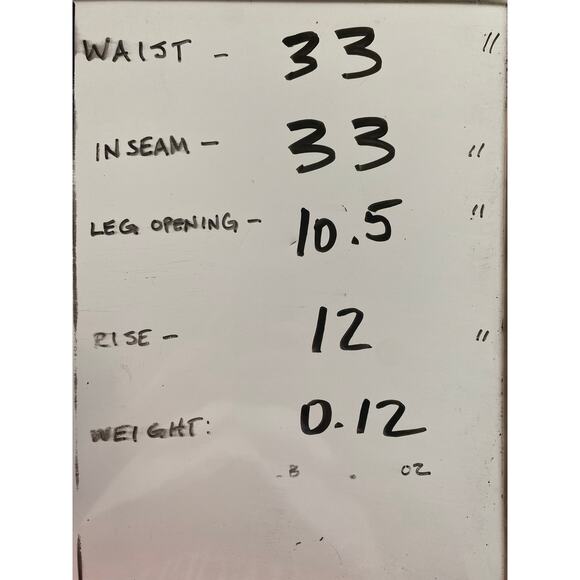 WAIST - 33 "
INSEAM - 33 "
LEG OPENING - 10.5 "
RISE - 12 "
WEIGHT: 0.12
. OZ